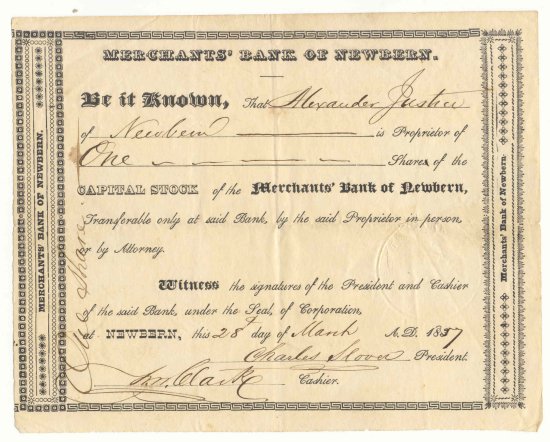 MERCHANTS' BANK OF NEWBERN.
Be it Known, That Alexander Justice
of Newbern is Proprietor of
One Shares of the
CAPITAL STOCK of the Merchants' Bank of Newbern,
Transferable only at said Bank, by the said Proprietor in person,
or by Attorney.
Witness the signatures of the President and Cashier
of the said Bank, under the Seal, of Corporation,
at NEWBERN, this 28 day of March A.D. 1857
Charles Slover President.
Wm. Clark Cashier.
MERCHANTS' BANK OF NEWBERN.
One Share
Merchants' Bank of Newbern.